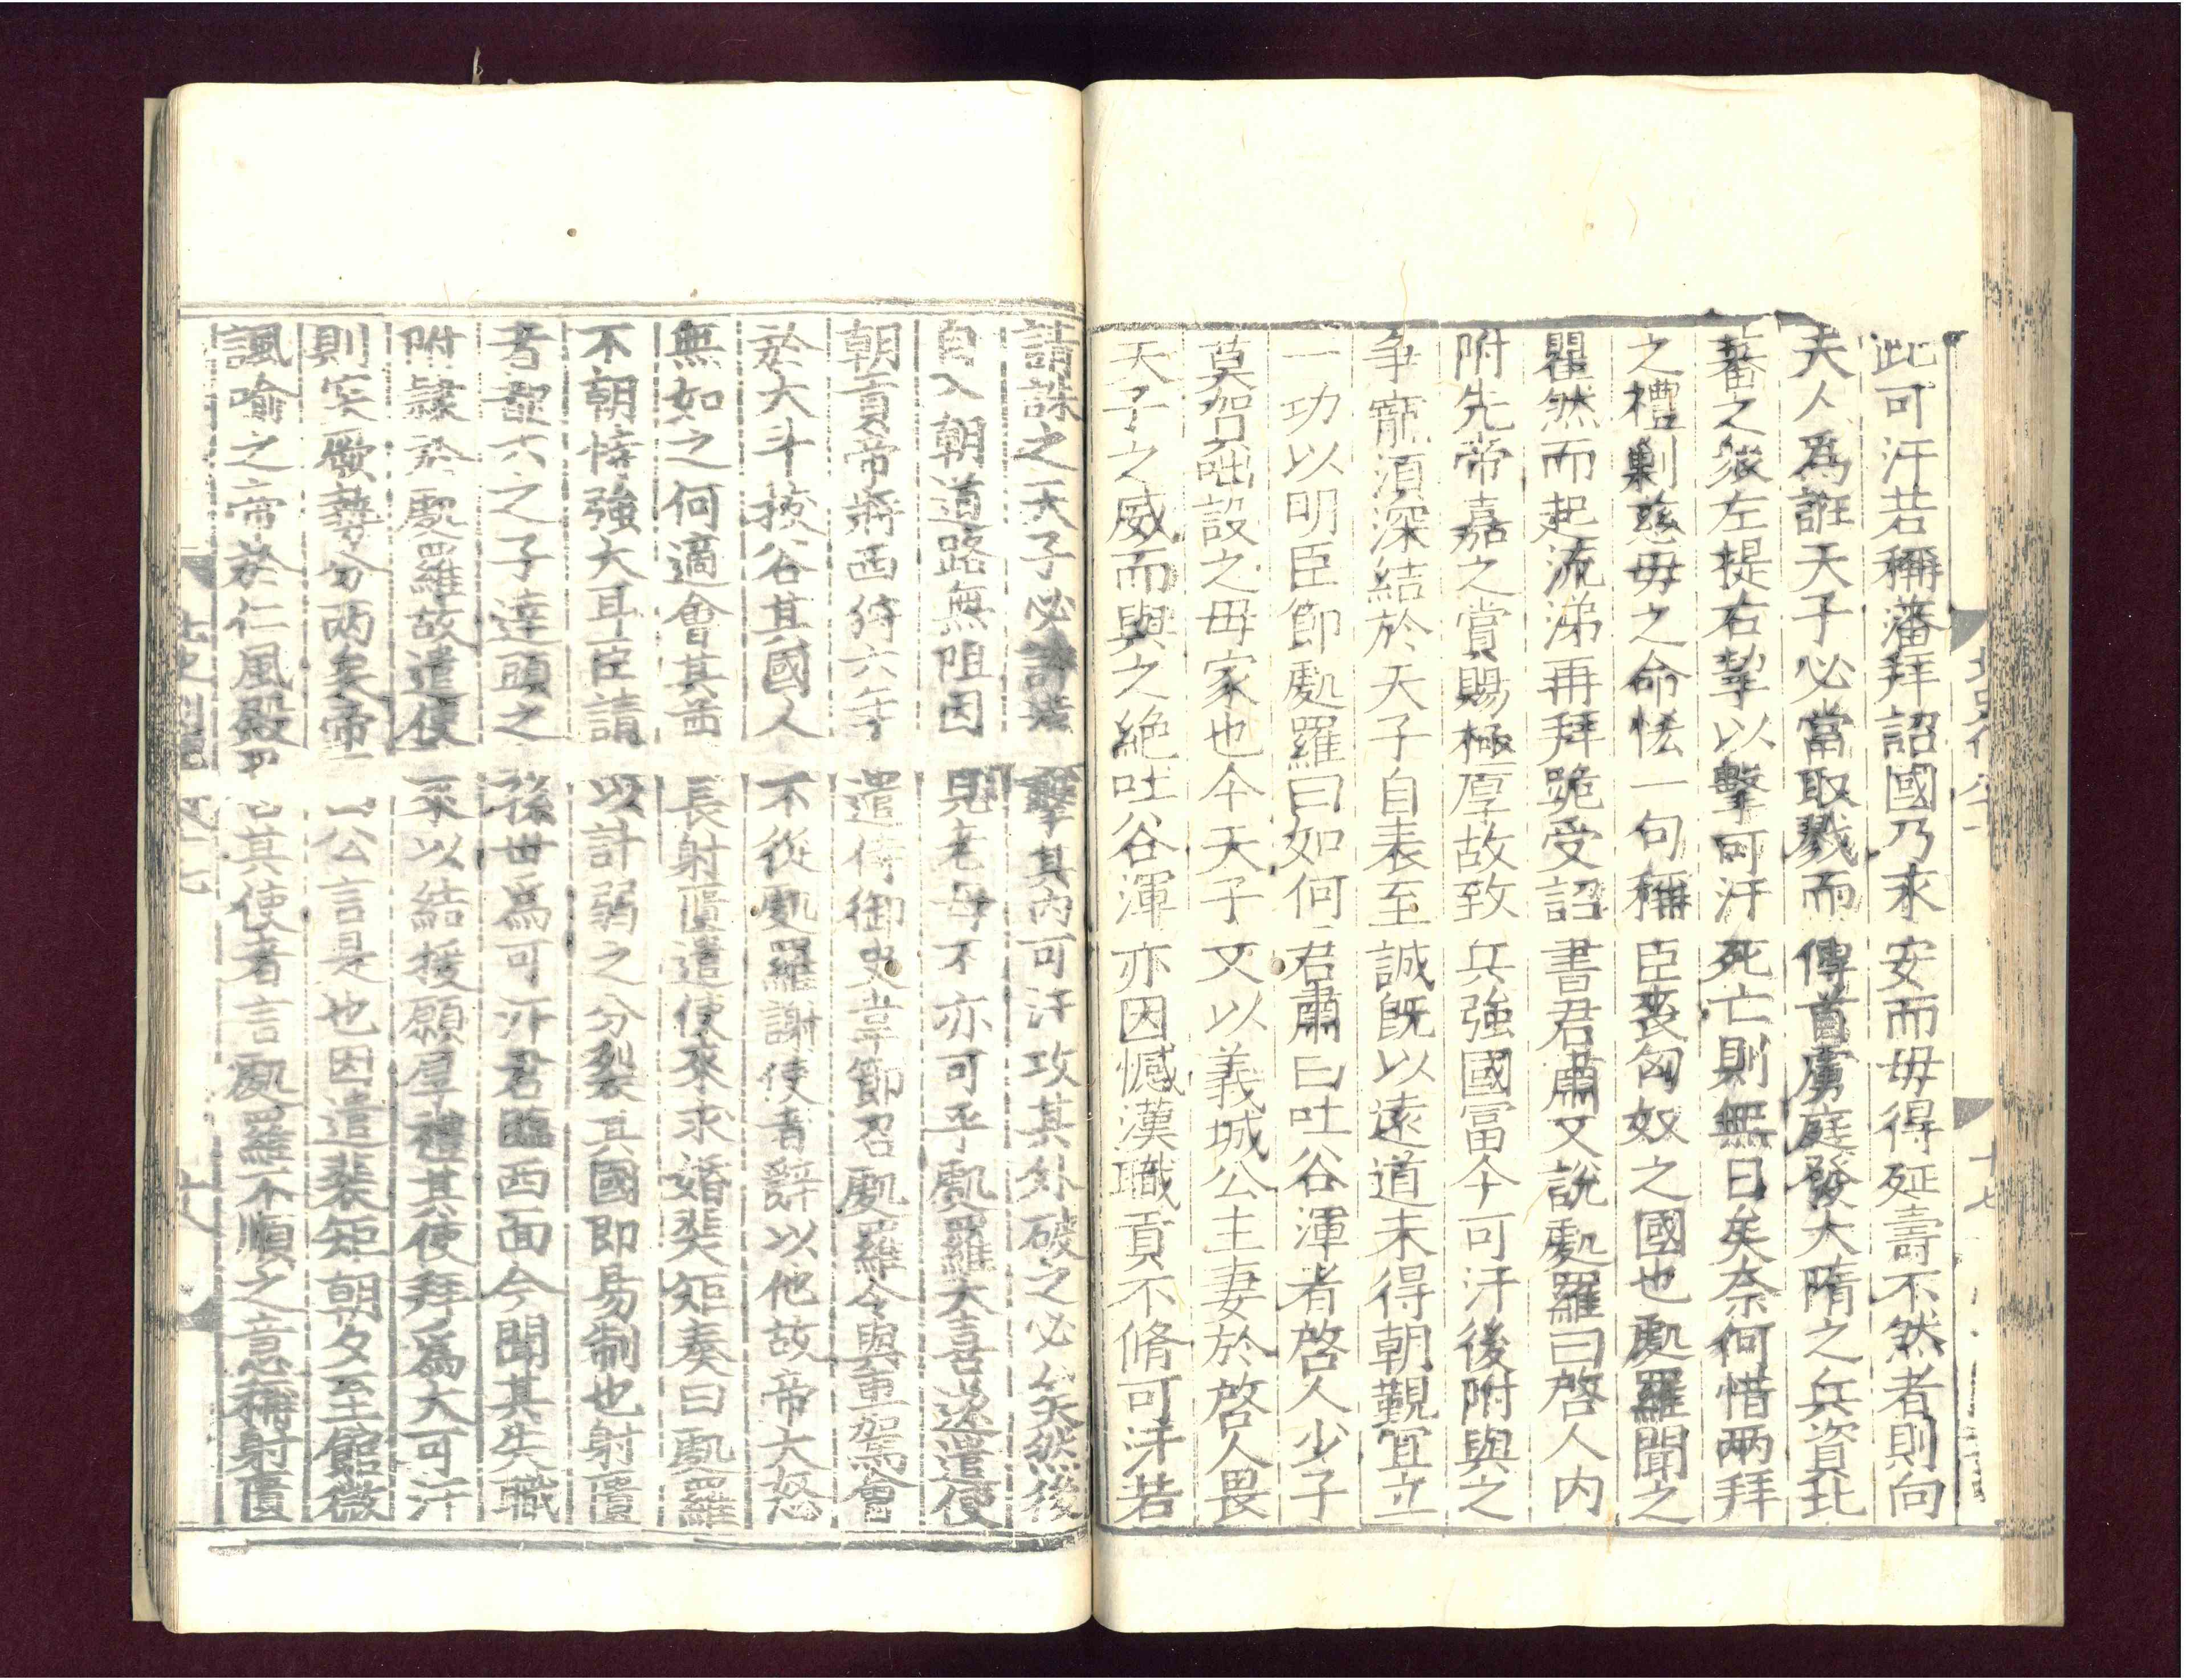 此可汗若稱藩拜詔國乃永安而毋得延壽不然者則向
夫人爲誑天子必當取戮而傳首虜庭發大隋之兵資北
蕃之衆左提右挈以擊可汗死亡則無日矣奈何惜兩拜
之禮剿慈母之命恡一句稱臣喪匈奴之國也處羅聞之
瞿然而起流涕再拜跪受詔書君肅又說處羅曰啓人内
附先帝嘉之賞賜極厚故致兵強國富今可汗後附與之
争寵須深結於天子自表至誠旣以遠道未得朝覲宜立
一功以明臣節處羅曰如何君肅曰吐谷渾者啓人少子
莫賀咄設之母家也今天子又以義城公主妻於啓人畏
天子之威而與之絶吐谷渾亦因憾漢職貢不脩可汗若
請誅之天子必許漢擊其内可汗攻其外破之必矣然後
自入朝道路無阻因見老母不亦可乎處羅大喜遂遣使
朝貢帝將西狩六年遣侍御史韋節召處羅令與車駕會
於大斗拔谷其國人不從處羅謝使者辭以他故帝大怒
無如之何適會其酋長射匱遣使來求婚裴矩奏曰處羅
不朝恃強大耳臣請以計弱之分裂其國即易制也射匱
者都六之子達頭之孫世爲可汗君臨西面今聞其失職
附隸於處羅故遣使來以結援願厚禮其使拜爲大可汗
則突厥勢分兩矣帝曰公言是也因遣裴矩朝夕至館微
諷喻之帝於仁風殿召其使者言處羅不順之意稱射匱